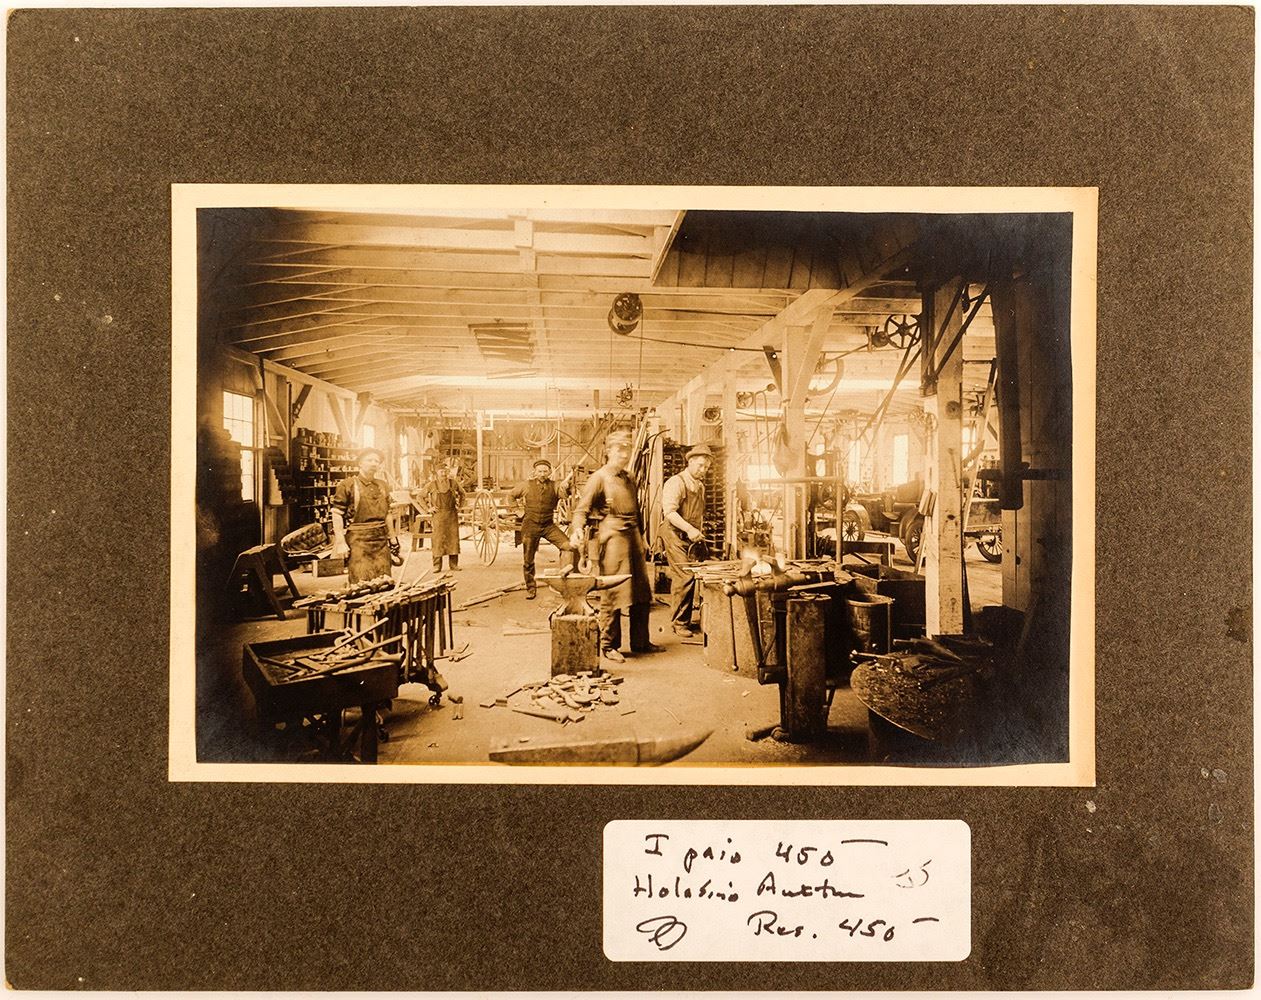 I paid 450
Holabird Auction
Res. 450